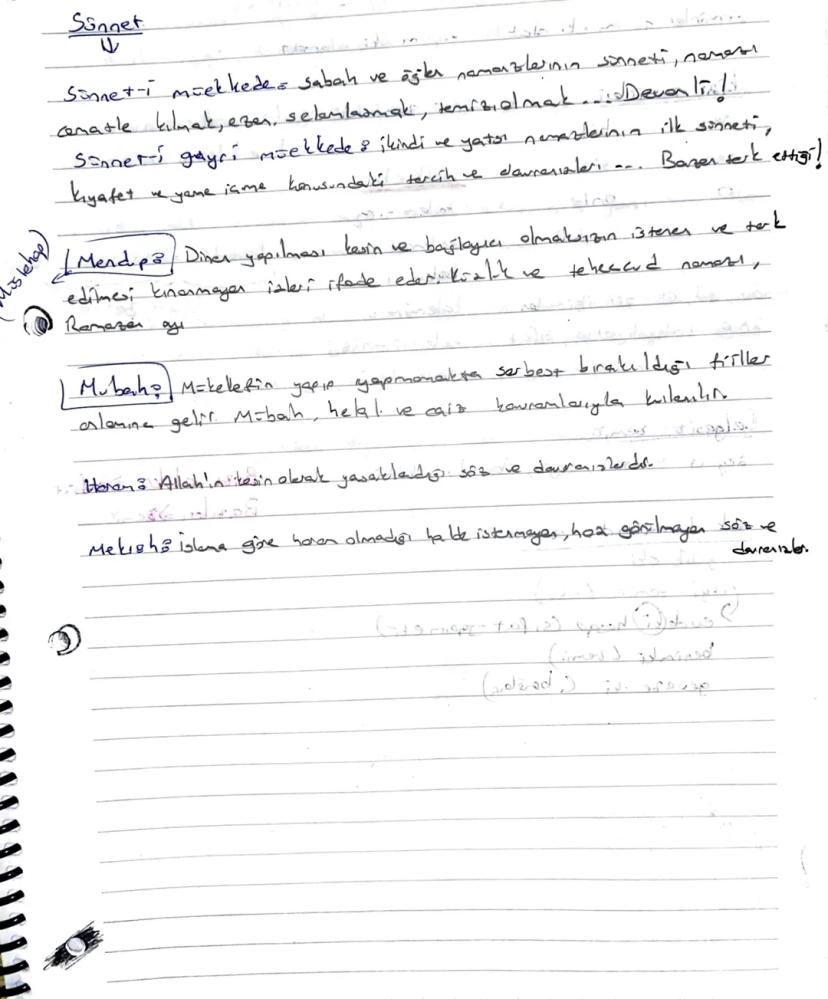 Sünnet
↓
Sünnet-i müekkede: sabah ve öğlen namazlarının sünneti, namazı
cemaatle kılmak, ezan, selamlaşmak, temiz olmak ... Devamlı!
Sünnet-i gayri müekkede: ikindi ve yatsı namazlarının ilk sünneti,
kıyafet ve yeme içme konusundaki tercih ve davranışları ... Bazen terk ettiği!
(Müstehap)
Mendup: Dinen yapılması kesin ve bağlayıcı olmaksızın istenen ve terk
edilmesi kınanmayan işleri ifade eder. ve teheccüd namazı,
Ramazan ayı
Mubah: Mükellefin yapıp yapmamakta serbest bırakıldığı fiiller
anlamına gelir. Mübah, helal ve caiz kavramlarıyla kullanılır.
Haram: Allah'ın kesin olarak yasakladığı söz ve davranışlardır.
Mekruh: İslama göre haram olmadığı halde istenmeyen, hoş görülmeyen söz ve
davranışlar.